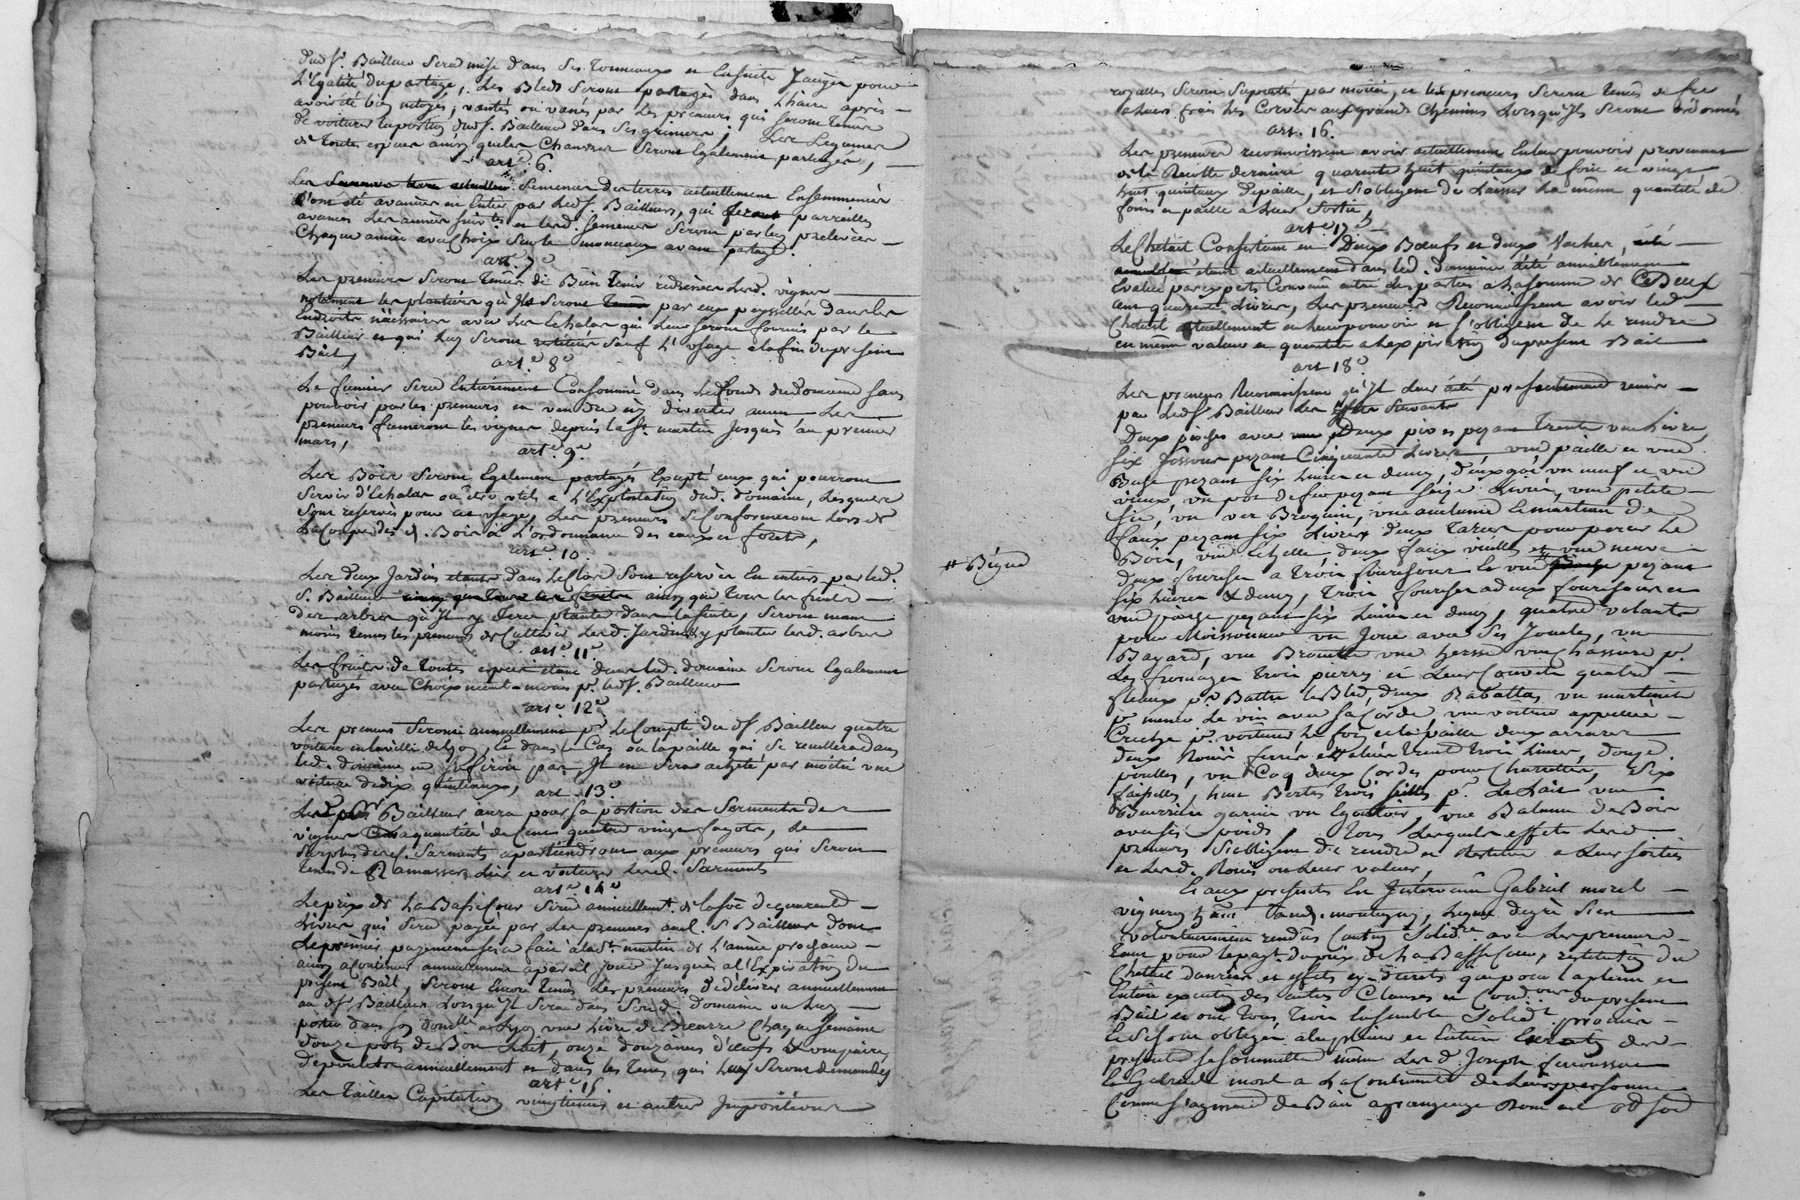 dud. Sr. Bailleur sera mise dans ses tonneaux et ensuite jaugée pour
L'Egalité du partage, Les Bleds seront partagés dans L'haire après
avoir été bien netoyés, vantés ou vanés par les preneurs qui seront tenus
de voiturer la portion dud. Sr. Bailleur dans ses greniers; Les Legumes
de toutes especes ainsy que les Chanvres seront Egalement partagés,
art. 6.
Les semences des terres actuellement Ensemmencées
ont été avancées en Entier par led. Sr. Bailleur, qui pareilles
avances Les années suiv.tes et lesd. semences seront par luy prelevées
Chaque année avec Choix sur le monceaux avant partage.
art. 7e
Les preneurs seront tenus de Bien tenir lesd. vignes
notamment les plantiers qu'Ils seront par eux peysellés dans les
Endroits nécessaires avec Les Echalas qui Leur seront fournis par le
Bailleur et qui Luy seront sauf L'usage a la fin du present
Bail,
art. 8e
Le fumier sera Entierement Consommé dans Les fonds du domaine sans
pouvoir par les preneurs en vendre ny divertir aucun Les
preneurs fumeront les vignes depuis la St. martin Jusques au premier
mars,
art. 9e
Les Bois seront Egalement partagés Excepté ceux qui pourront
servir d'Echalas ou être utils a L'Exploitation dud. domaine, Lesquels
sont reservés pour cet usage, Les preneurs se Conformeront Lors de
La Coupe desd. Bois à L'ordonnance des eaux et forets,
art. 10.
Les deux Jardins dans Le Clos sont reservés En entiers par led.
Sr. Bailleur ainsy que tous les fruits
des arbres qu'Il y fera planter dans la suite, seront neant
moins tenus les preneurs de Cultiver Lesd. Jardins & y planter lesd. arbres
art. 11e
Les fruits de toutes especes dans led. domaine seront Egalement
partagés avec Choix neant-moins pr. led. Sr. Bailleur
art. 12e
Les preneurs seront annuellement pr. Le Compte du d. Sr. Bailleur quatre
voitures en la ville de Lyon, Et dans Le Cas ou la paille qui se receuillera dans
led. domaine ne suffiroit pas, Il en sera acheté par moitié une
voiture de dix quintaux,
art. 13e
Led. Sr. Bailleur aura pour sa portion des Sarments des
vignes La quantité de Cents quatre vingt fagots, Le
surplus desd. Sarments apartiendront aux preneurs qui seront
tenus de Ramasser, Lier et voiturer Lesd. Sarments
art. 14e
Le prix de La Basse Cour sera annuellemt. de la somme de quarente
Livres qui sera payée par Les preneurs aud. Sr. Bailleur dont
Le premier payement sera fait à la St. martin de L'année prochaine
ainsy a Continuer annuellement a pareil jour Jusques a l'Expiration du
present Bail, seront Encore tenus Les preneurs de delivrer annuellement
au d. Sr. Bailleur Lorsqu'Il sera dans Sond. domaine ou Luy
porter dans son domlle a Lyon une Livre de Beurre Chaque semaine
douze pots de Bon Lait, onze douzaines d'œufs & cinq paires
de poulets annuellement et dans les tems qui Luy seront demandés
art. 15.
Les Tailles Capitation vingtiemes et autres Impositions
royalles seront suportés par moitié, et les preneurs seront tenus de faire
a Leurs frais les Corvées aux grands Chemins Lorsqu'Ils seront ordonnés
art. 16.
Les preneurs reconnoissent avoir actuellement En leur pouvoir provenant
de la Recolte derniere quarente huit quintaux de foin et vingt
huit quintaux de paille, et s'obligent de Laisser La même quantité de
foin et paille a Leur sortie,
art. 17e
Le Cheteil Consistant en deux Bœufs et deux Vaches,
étant actuellement dans led. domaine a été amiablement
Evalué par experts Convenus entre les parties a La somme de Deux
cent quarente Livres, Les preneurs Reconnoissent avoir led.
Cheteil actuellement en leur pouvoir et s'obligent de Le rendre
en même valeur et quantité a L'expiration du present Bail
art. 18e
Les preneurs Reconnoissent qu'Il Leur a été presentement remis
par Led. Sr. Bailleur Les Effets suivants
Deux pioches avec Deux pives pezant Trente une Livres,
six fossoirs pezant Cinquante Livres une paille et une
Buse pezant six Livres et demy, deux goi un neuf et un
vieux, un pot de fer pezant seize Livres, une petite
sie, un ver Broquin, une enclume Et marteau de
faux pezant six Livres deux Tares pour percer Le
Bois, une Echelle deux faux vieilles et une neuve
# Bigue
deux fourches a trois fourchons Et une # pezant
six Livres & demy, trois fourches a deux fourchons et
une pioche pezant six Livres et demy, quatre volants
pour Moissonner un Joug avec ses Joucles, un
Bayard, une Brouette une herse une chassiere pr.
Les fromages trois pierres et Leur Couvert quatre
fleaux pr. Battre Le Bled, deux Rabattes, un martinet
pr. mener Le vin avec sa Corde une voiture appellée
Creche pr. voiturer Le foin et la paille deux arraires
deux Roües ferrée trente trois Lunes, douze
poulles, un Coq deux Cordes pour Charettes, six
faisselles, huit Bertes trois seilles pr. Le Lait une
Beurriere garnie un Egoutoir, une Balance de Bois
avec ses poids. Tous Lesquels effets Lesd.
preneurs s'obligent de rendre et restituer a Leur sorties
et Lesd. Roües ou Leur valeur,
Et aux presentes Est Intervenû Gabriel morel
vigneron hant. Sand. montagny, Lequel degré s'est
volontairement rendus Caution solidre avec Les preneurs
tant pour le payt. du prix de La Basse Cour, restitution du
Cheteil danrées et effets cy-dessus que pour La pleine et
Entiere execution des autres Clauses et Condions du present
Bail et ont tous trois Ensemble solidt. promis
Et se sont obligés a La pleine et Entiere Execution des
presentes se soummettre même Les d. Joseph
Et Gabriel morel a La Contrainte de Leurs personnes
Comme s'agissant de Bail a grangeage